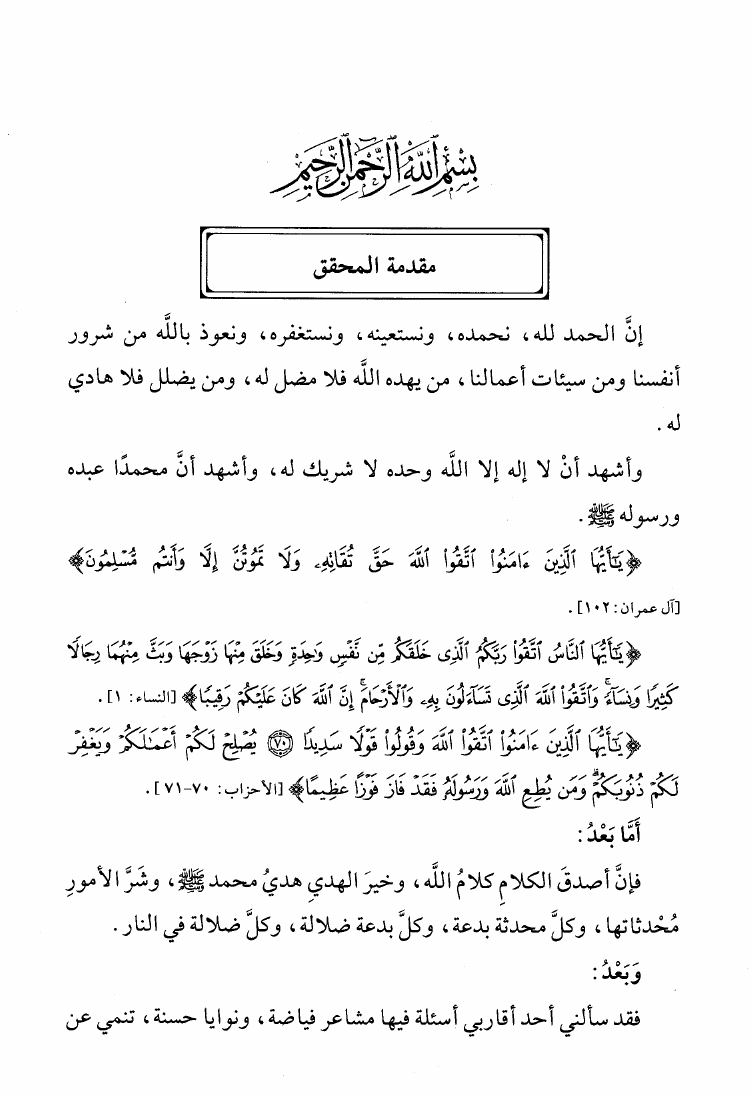 بِسْمِ اللَّهِ الرَّحْمَنِ الرَّحِيمِ
مقدمة المحقق
إنَّ الحمد لله، نحمده، ونستعينه، ونستغفره، ونعوذ باللَّه من شرور
أنفسنا ومن سيئات أعمالنا، من يهده اللَّه فلا مضل له، ومن يضلل فلا هادي
له.
وأشهد أنْ لا إله إلا اللَّه وحده لا شريك له، وأشهد أنَّ محمدًا عبده
ورسوله ﷺ.
﴿يَٰٓأَيُّهَا ٱلَّذِينَ ءَامَنُوا۟ ٱتَّقُوا۟ ٱللَّهَ حَقَّ تُقَاتِهِۦ وَلَا تَمُوتُنَّ إِلَّا وَأَنتُم مُّسْلِمُونَ﴾
[آل عمران: ١٠٢].
﴿يَٰٓأَيُّهَا ٱلنَّاسُ ٱتَّقُوا۟ رَبَّكُمُ ٱلَّذِى خَلَقَكُم مِّن نَّفْسٍ وَٰحِدَةٍ وَخَلَقَ مِنْهَا زَوْجَهَا وَبَثَّ مِنْهُمَا رِجَالًا
كَثِيرًا وَنِسَآءً ۚ وَٱتَّقُوا۟ ٱللَّهَ ٱلَّذِى تَسَآءَلُونَ بِهِۦ وَٱلْأَرْحَامَ ۚ إِنَّ ٱللَّهَ كَانَ عَلَيْكُمْ رَقِيبًا﴾ [النساء: ١].
﴿يَٰٓأَيُّهَا ٱلَّذِينَ ءَامَنُوا۟ ٱتَّقُوا۟ ٱللَّهَ وَقُولُوا۟ قَوْلًا سَدِيدًا ۝٧٠ يُصْلِحْ لَكُمْ أَعْمَٰلَكُمْ وَيَغْفِرْ
لَكُمْ ذُنُوبَكُمْ ۗ وَمَن يُطِعِ ٱللَّهَ وَرَسُولَهُۥ فَقَدْ فَازَ فَوْزًا عَظِيمًا﴾ [الأحزاب: ٧٠-٧١].
أَمَّا بَعْدُ:
فإنَّ أصدقَ الكلامِ كلامُ اللَّه، وخيرَ الهديِ هديُ محمد ﷺ، وشَرَّ الأمورِ
مُحْدثاتها، وكلَّ محدثة بدعة، وكلَّ بدعة ضلالة، وكلَّ ضلالة في النار.
وَبَعْدُ:
فقد سألني أحد أقاربي أسئلة فيها مشاعر فياضة، ونوايا حسنة، تنمي عن